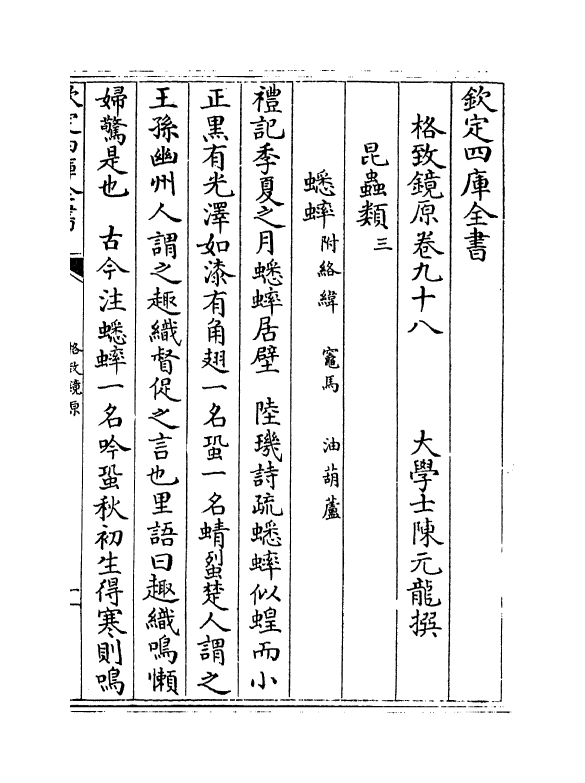 欽定四庫全書
格致鏡原卷九十八　大學士陳元龍撰
昆蟲類三
蟋蟀附絡緯　竈馬　油葫蘆
禮記季夏之月蟋蟀居壁　陸璣詩疏蟋蟀似蝗而小
正黑有光澤如漆有角翅一名蛩一名蜻蛚楚人謂之
王孫幽州人謂之趣織督促之言也里語曰趣織鳴懶
婦驚是也　古今注蟋蟀一名吟蛩秋初生得寒則鳴
欽定四庫全書
格致鏡原
一